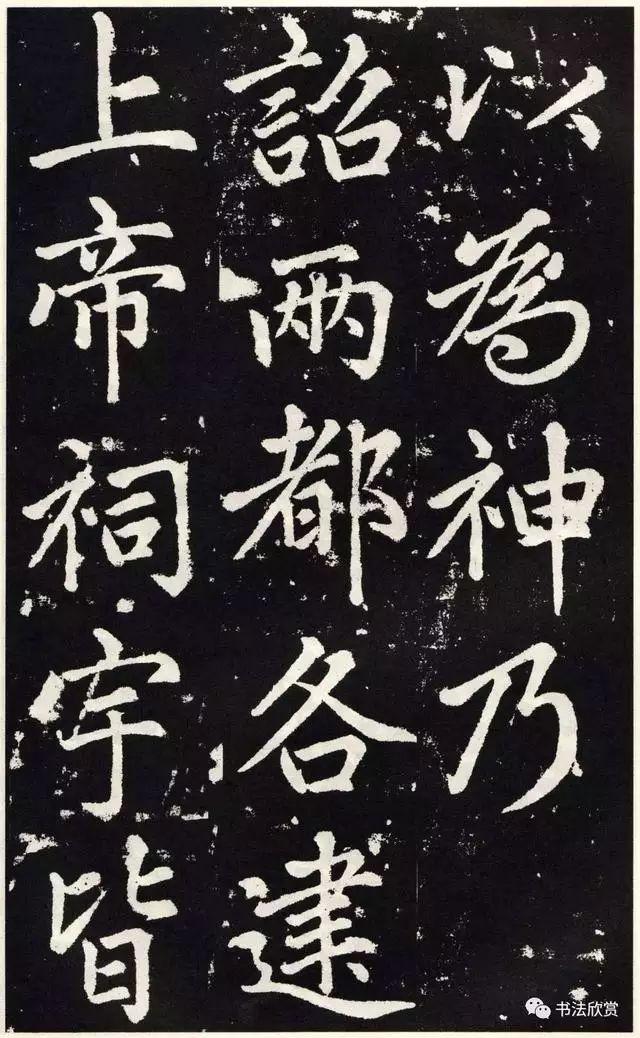 以為神乃
詔兩都各建
上帝祠宇皆
书法欣赏